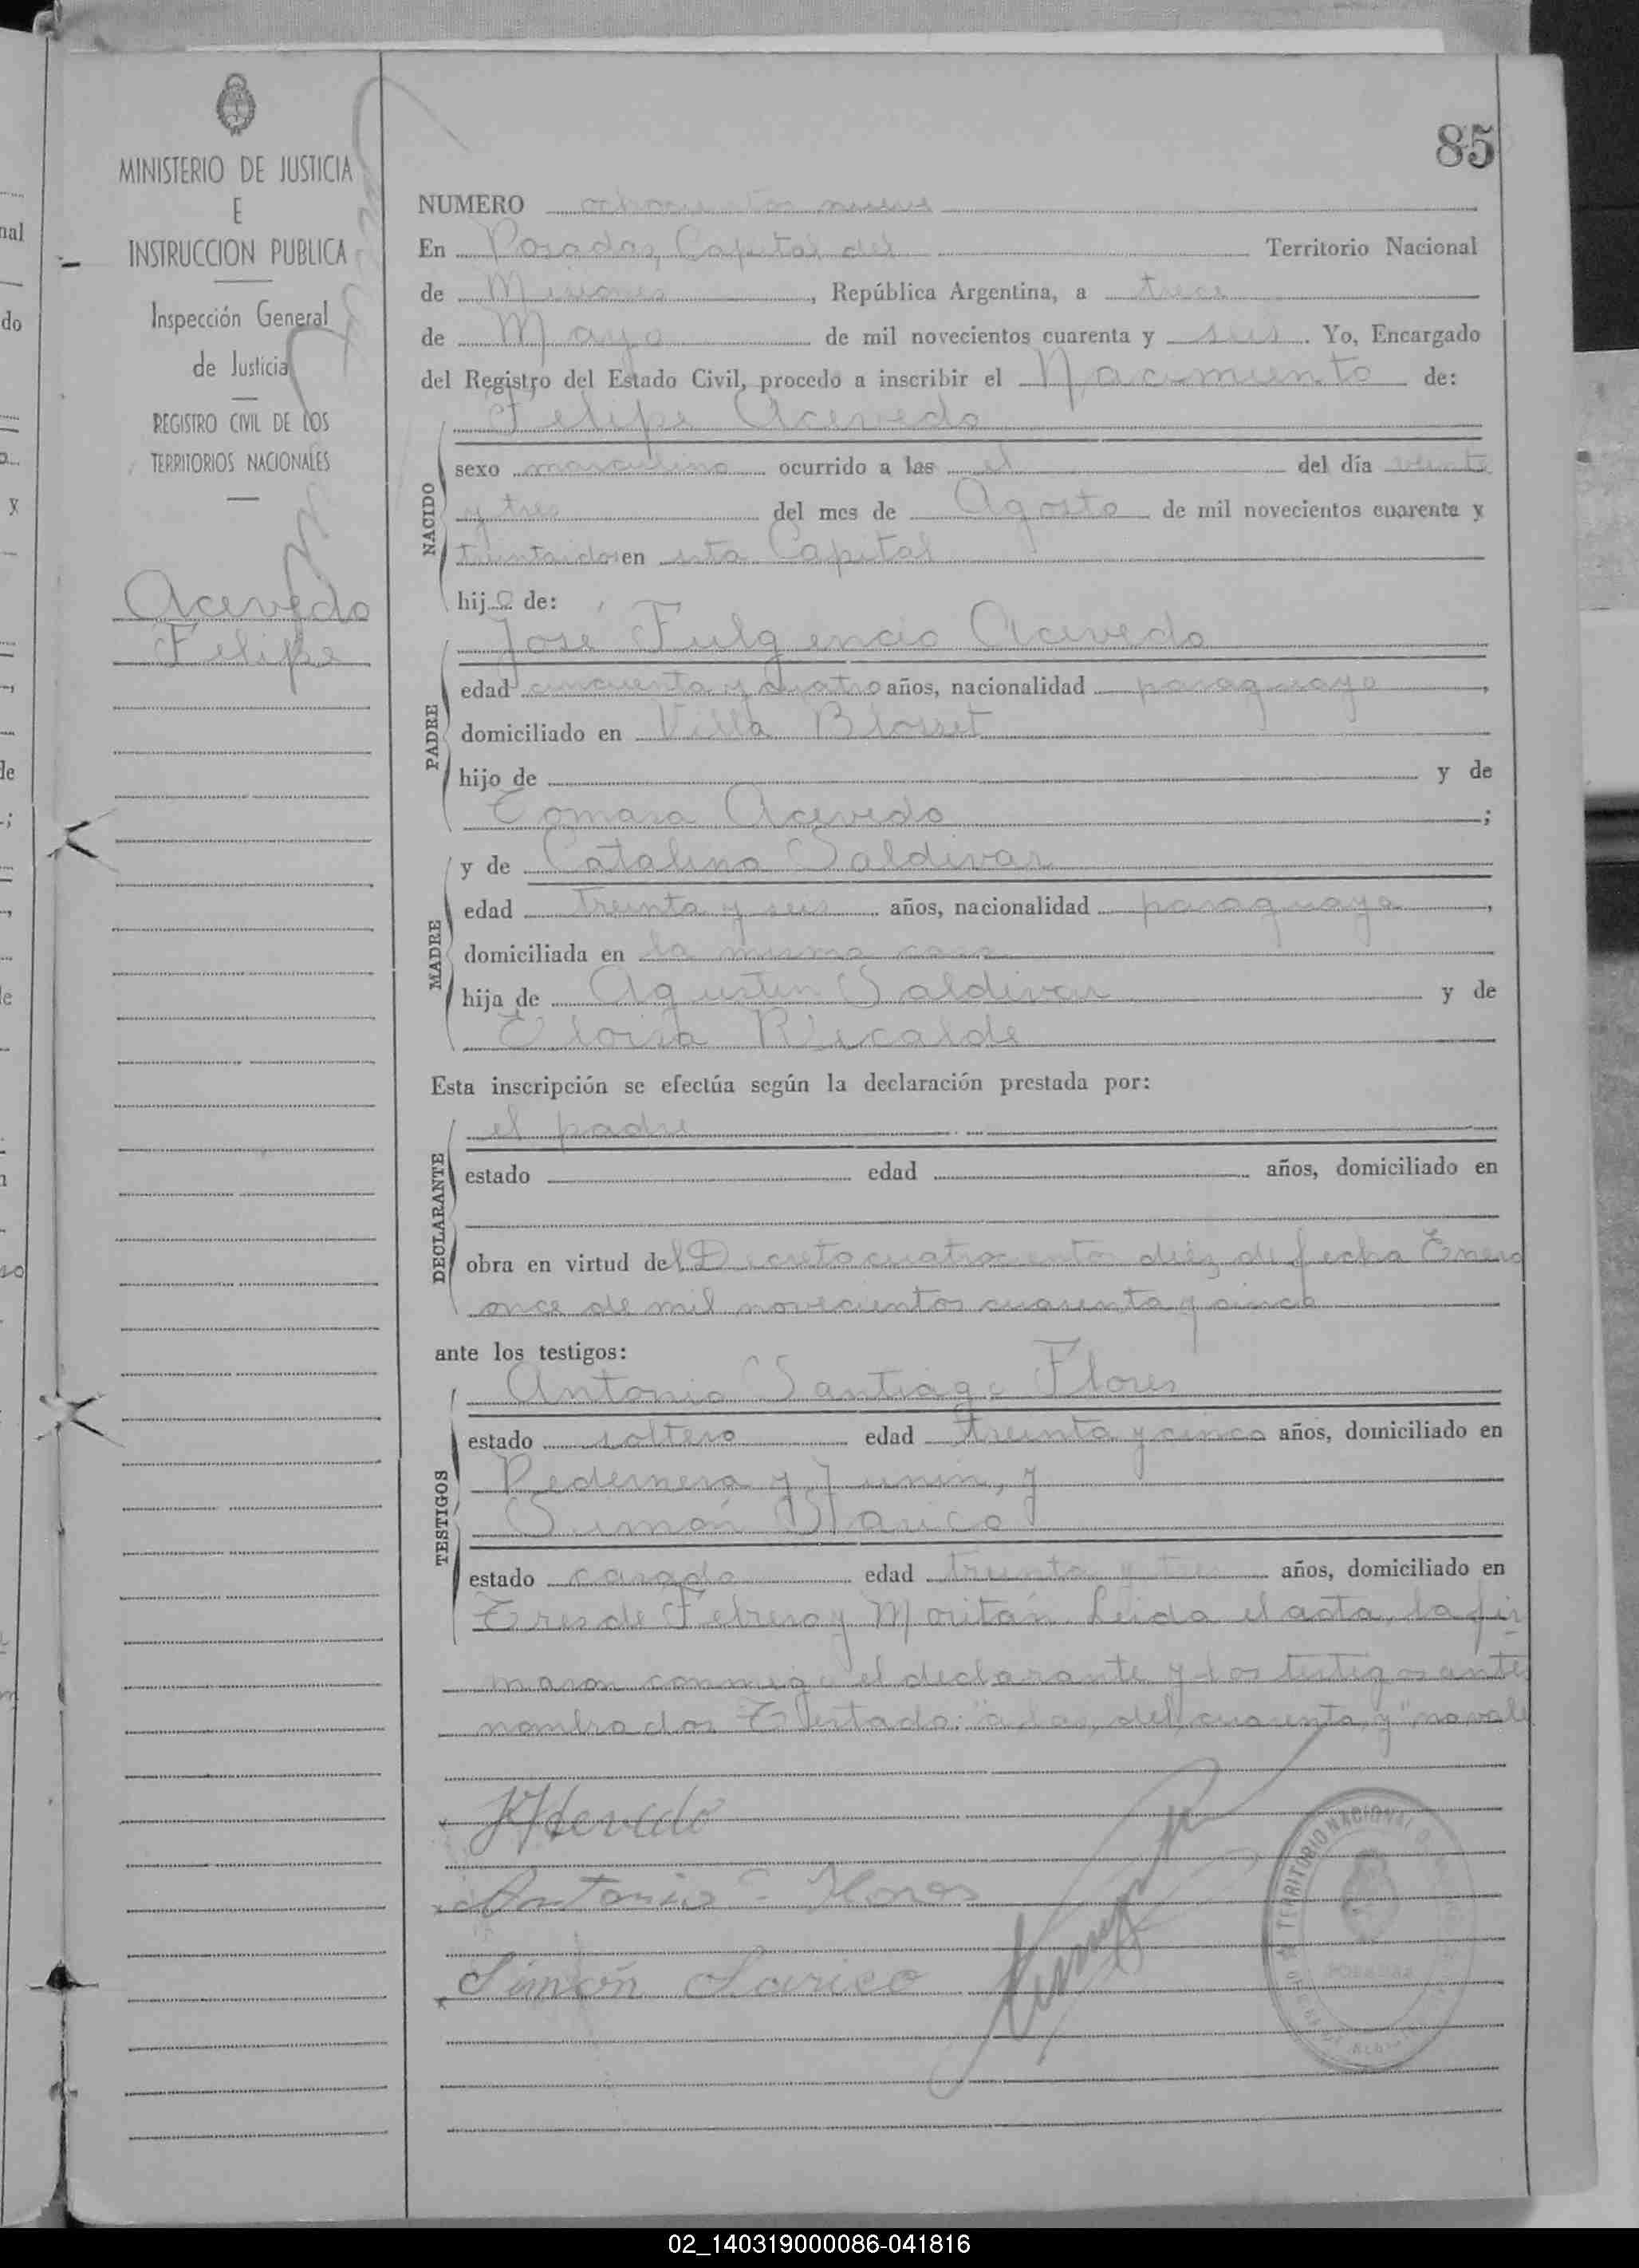 85
MINISTERIO DE JUSTICIA
E
INSTRUCCION PUBLICA
Inspección General
de Justicia
REGISTRO CIVIL DE LOS
TERRITORIOS NACIONALES
Acevedo
Felipe
NUMERO ochocientos nueve
En Posadas, Capital del Territorio Nacional
de Misiones, República Argentina, a trece
de Mayo de mil novecientos cuarenta y seis. Yo, Encargado
del Registro del Estado Civil, procedo a inscribir el Nacimiento de:
NACIDO
Felipe Acevedo
sexo masculino ocurrido a las el del día veinte
y tres del mes de Agosto de mil novecientos cuarenta y
treintaidos en esta Capital
hijo de:
PADRE
José Fulgencio Acevedo
edad cincuenta y cuatro años, nacionalidad paraguaya,
domiciliado en Villa Blosset
hijo de y de
Tomasa Acevedo;
MADRE
y de Catalina Saldivar
edad treinta y seis años, nacionalidad paraguaya,
domiciliada en la misma casa
hija de Agustin Saldivar y de
Eloisa Ricalde
Esta inscripción se efectúa según la declaración prestada por:
DECLARANTE
el padre
estado edad años, domiciliado en
obra en virtud del Decreto cuatrocientos diez de fecha Enero
once de mil novecientos cuarenta y cinco
ante los testigos:
TESTIGOS
Antonio Santiago Flores
estado soltero edad treinta y cinco años, domiciliado en
Pedernera y Junin, y
Simón Larico
estado casado edad treinta y tres años, domiciliado en
Tres de Febrero y Moritán. Leida el acta, la fir
maron conmigo el declarante y los testigos ante
nombrados Testado: "a las, del, cuarenta, y" no vale
Acevedo
Antonio S Flores
Simón Larico
TERRITORIO NACIONAL
POSADAS
02_140319000086-041816